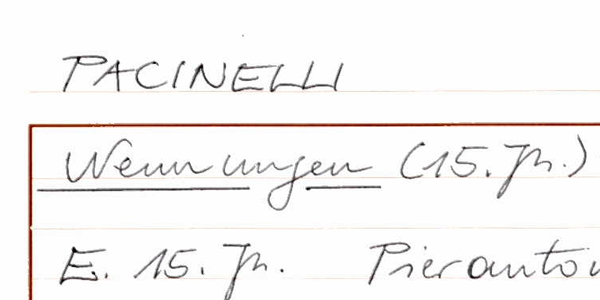 PACINELLI
Nennungen (15. Jh.)
E. 15. Jh. Pierantoi